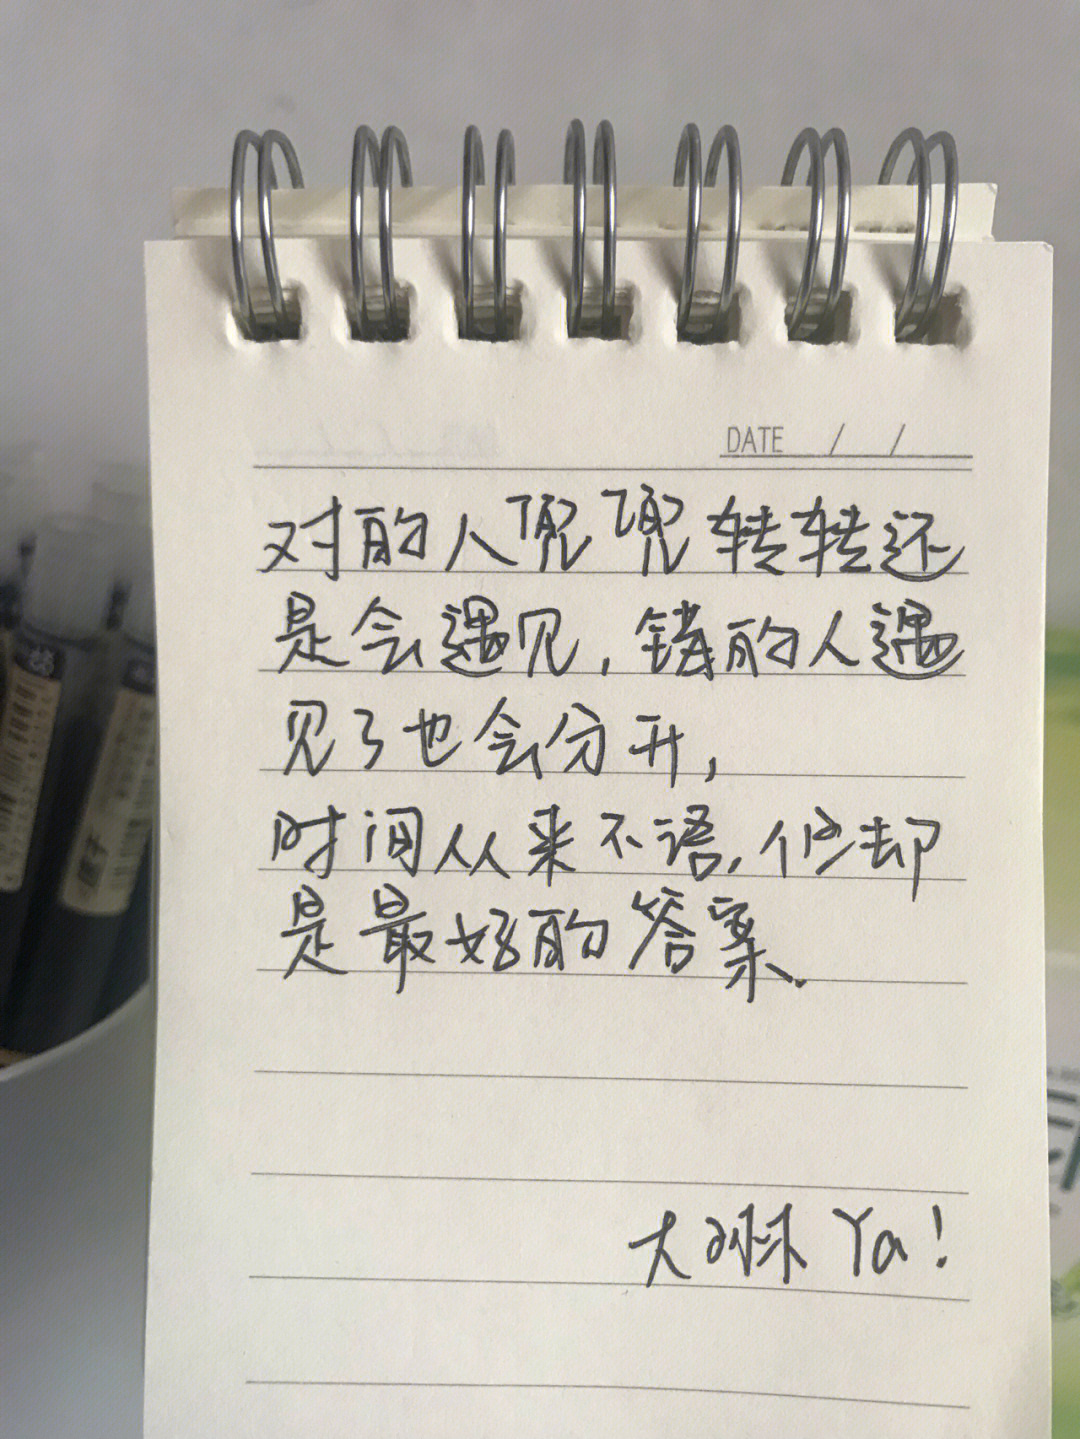 DATE / /
对的人兜兜转转还
是会遇见,错的人遇
见了也会分开,
时间从来不语,但却
是最好的答案.
大啉 Ya!